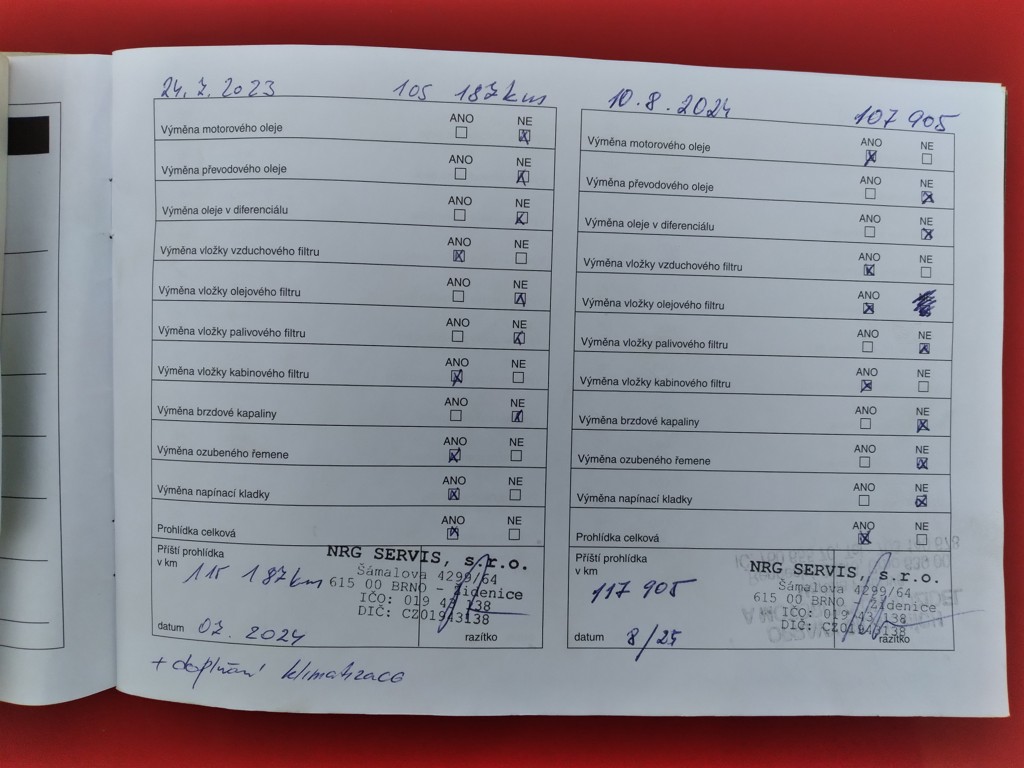 24. 7. 2023 105 187 km
ANO NE
Výměna motorového oleje ☐ ☒
ANO NE
Výměna převodového oleje ☐ ☒
ANO NE
Výměna oleje v diferenciálu ☐ ☒
ANO NE
Výměna vložky vzduchového filtru ☒ ☐
ANO NE
Výměna vložky olejového filtru ☐ ☒
ANO NE
Výměna vložky palivového filtru ☐ ☒
ANO NE
Výměna vložky kabinového filtru ☒ ☐
ANO NE
Výměna brzdové kapaliny ☐ ☒
ANO NE
Výměna ozubeného řemene ☒ ☐
ANO NE
Výměna napínací kladky ☒ ☐
ANO NE
Prohlídka celková ☒ ☐
Příští prohlídka
v km 115 187 km
NRG SERVIS, s.r.o.
Šámalova 4299/64
615 00 BRNO - Židenice
IČO: 019 43 138
DIČ: CZ01943138
datum 07. 2024 razítko
+ doplnění klimatizace
10. 8. 2024 107 905
ANO NE
Výměna motorového oleje ☒ ☐
ANO NE
Výměna převodového oleje ☐ ☒
ANO NE
Výměna oleje v diferenciálu ☐ ☒
ANO NE
Výměna vložky vzduchového filtru ☒ ☐
ANO
Výměna vložky olejového filtru ☒
ANO NE
Výměna vložky palivového filtru ☐ ☒
ANO NE
Výměna vložky kabinového filtru ☒ ☐
ANO NE
Výměna brzdové kapaliny ☐ ☒
ANO NE
Výměna ozubeného řemene ☐ ☒
ANO NE
Výměna napínací kladky ☐ ☒
ANO NE
Prohlídka celková ☒ ☐
Příští prohlídka
v km 117 905
NRG SERVIS, s.r.o.
Šámalova 4299/64
615 00 BRNO - Židenice
IČO: 019 43 138
DIČ: CZ01943138
datum 8/25 razítko